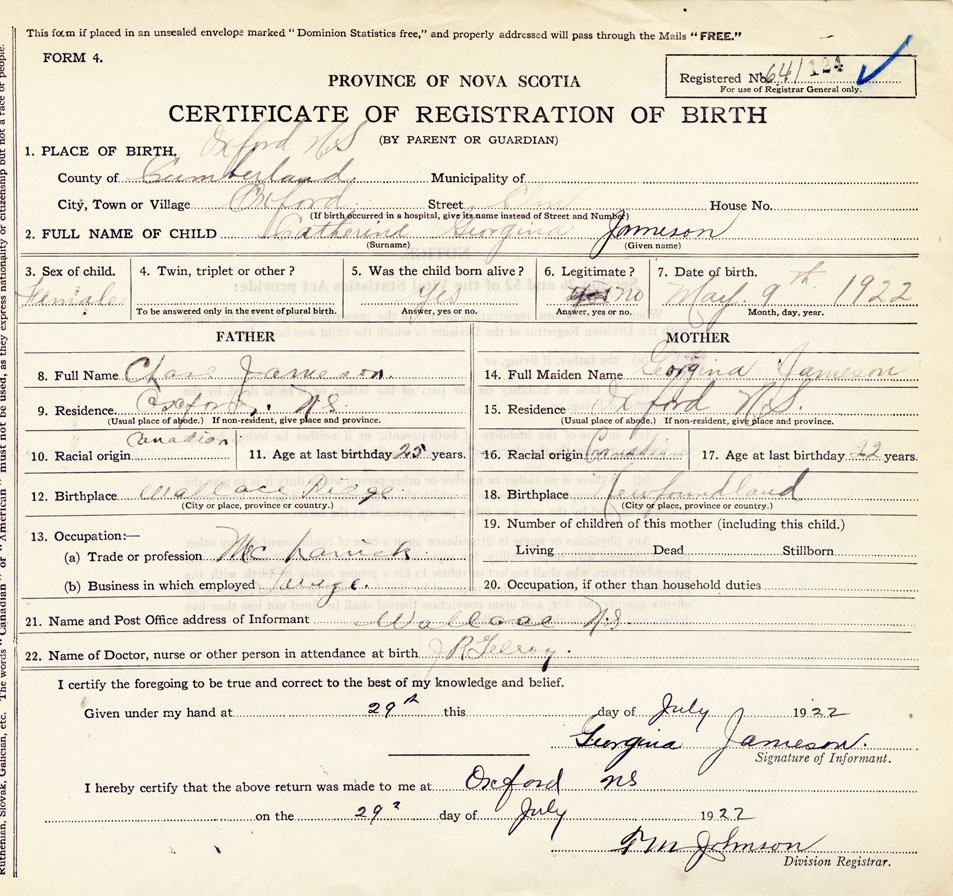 This form if placed in an unsealed envelope marked "Dominion Statistics free," and properly addressed will pass through the Mails "FREE."
FORM 4.
PROVINCE OF NOVA SCOTIA
Registered No. 641124
For use of Registrar General only.
CERTIFICATE OF REGISTRATION OF BIRTH
(BY PARENT OR GUARDIAN)
1. PLACE OF BIRTH, Oxford N S
County of Cumberland Municipality of
City, Town or Village Oxford Street House No.
(If birth occurred in a hospital, give its name instead of Street and Number)
2. FULL NAME OF CHILD Catherine Georgina Jameson
(Surname) (Given name)
3. Sex of child. 4. Twin, triplet or other? 5. Was the child born alive? 6. Legitimate? 7. Date of birth.
Female Yes no May. 9th 1922
To be answered only in the event of plural birth. Answer, yes or no. Answer, yes or no. Month, day, year.
FATHER MOTHER
8. Full Name Chas Jameson. 14. Full Maiden Name Georgina Jameson
9. Residence Oxford, N S 15. Residence Oxford N.S.
(Usual place of abode.) If non-resident, give place and province. (Usual place of abode.) If non-resident, give place and province.
10. Racial origin Canadian 11. Age at last birthday 25 years. 16. Racial origin Canadian 17. Age at last birthday 22 years.
12. Birthplace Wallace Ridge. 18. Birthplace Newfoundland
(City or place, province or country.) (City or place, province or country.)
19. Number of children of this mother (including this child.)
13. Occupation:—
(a) Trade or profession Mechanick. Living Dead Stillborn
(b) Business in which employed 20. Occupation, if other than household duties
21. Name and Post Office address of Informant Wallace N.S.
22. Name of Doctor, nurse or other person in attendance at birth J R
I certify the foregoing to be true and correct to the best of my knowledge and belief.
Given under my hand at 29th this day of July 1922
Georgina Jameson.
Signature of Informant.
I hereby certify that the above return was made to me at Oxford NS
on the 29 day of July 1922
Johnson
Division Registrar.
Ruthenian, Slovak, Galician, etc. The words "Canadian" or "American" must not be used, as they express nationality or citizenship but not a race or people.